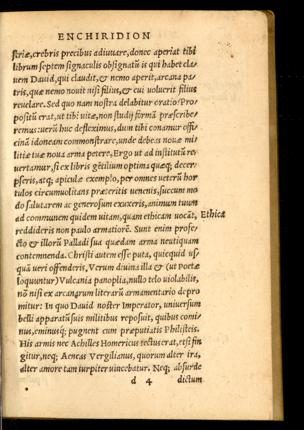 ENCHIRIDION
striæ, crebris precibus adiuuare, donec aperiat tibi
librum septem signaculis obsignatũ is qui habet cla-
uem Dauid, qui claudit, & nemo aperit, arcana pa-
tris, quæ nemo nouit nisi filius, & cui uoluerit filius
reuelare. Sed quo nam nostra delabitur oratio? Pro-
positũ erat, ut tibi uitæ, non studij formã præscribe-
remus: uerũ huc defleximus, dum tibi conamur offi-
cinã idoneam commonstrare, unde debeas nouæ mi-
litiæ tuæ noua arma petere, Ergo ut ad institutũ re-
uertamur, si ex libris gētilium optima quæq; decer-
pseris, atq; apiculæ exemplo, per omnes ueterũ hor-
tulos circumuolitans præteritis uenenis, succum mo-
do salutarem ac generosum exuxeris, animum tuum
ad communem quidem uitam, quam ethicam uocāt, Ethica
reddideris non paulo armatiorē. Sunt enim profe-
cto & illorũ Palladi sua quædam arma neutiquam
contemnenda. Christi autem esse puta, quicquid us-
quã ueri offenderis, Verum diuina illa & (ut Poetæ
loquuntur) Vulcania panoplia, nullo telo uiolabilis,
nõ nisi ex arcanarum literarũ armamentario de pro-
mitur: In quo Dauid noster Imperator, uniuersum
belli apparatũ suis militibus reposuit, quibus comi-
nus, eminusq; pugnent cum præputiatis Philistæis.
His armis nec Achilles Homericus tectus erat, etsi fin
gitur, neq; Aeneas Vergilianus, quorum alter ira,
alter amore tam turpiter uincebatur. Neq; absurde
d 4 dictum